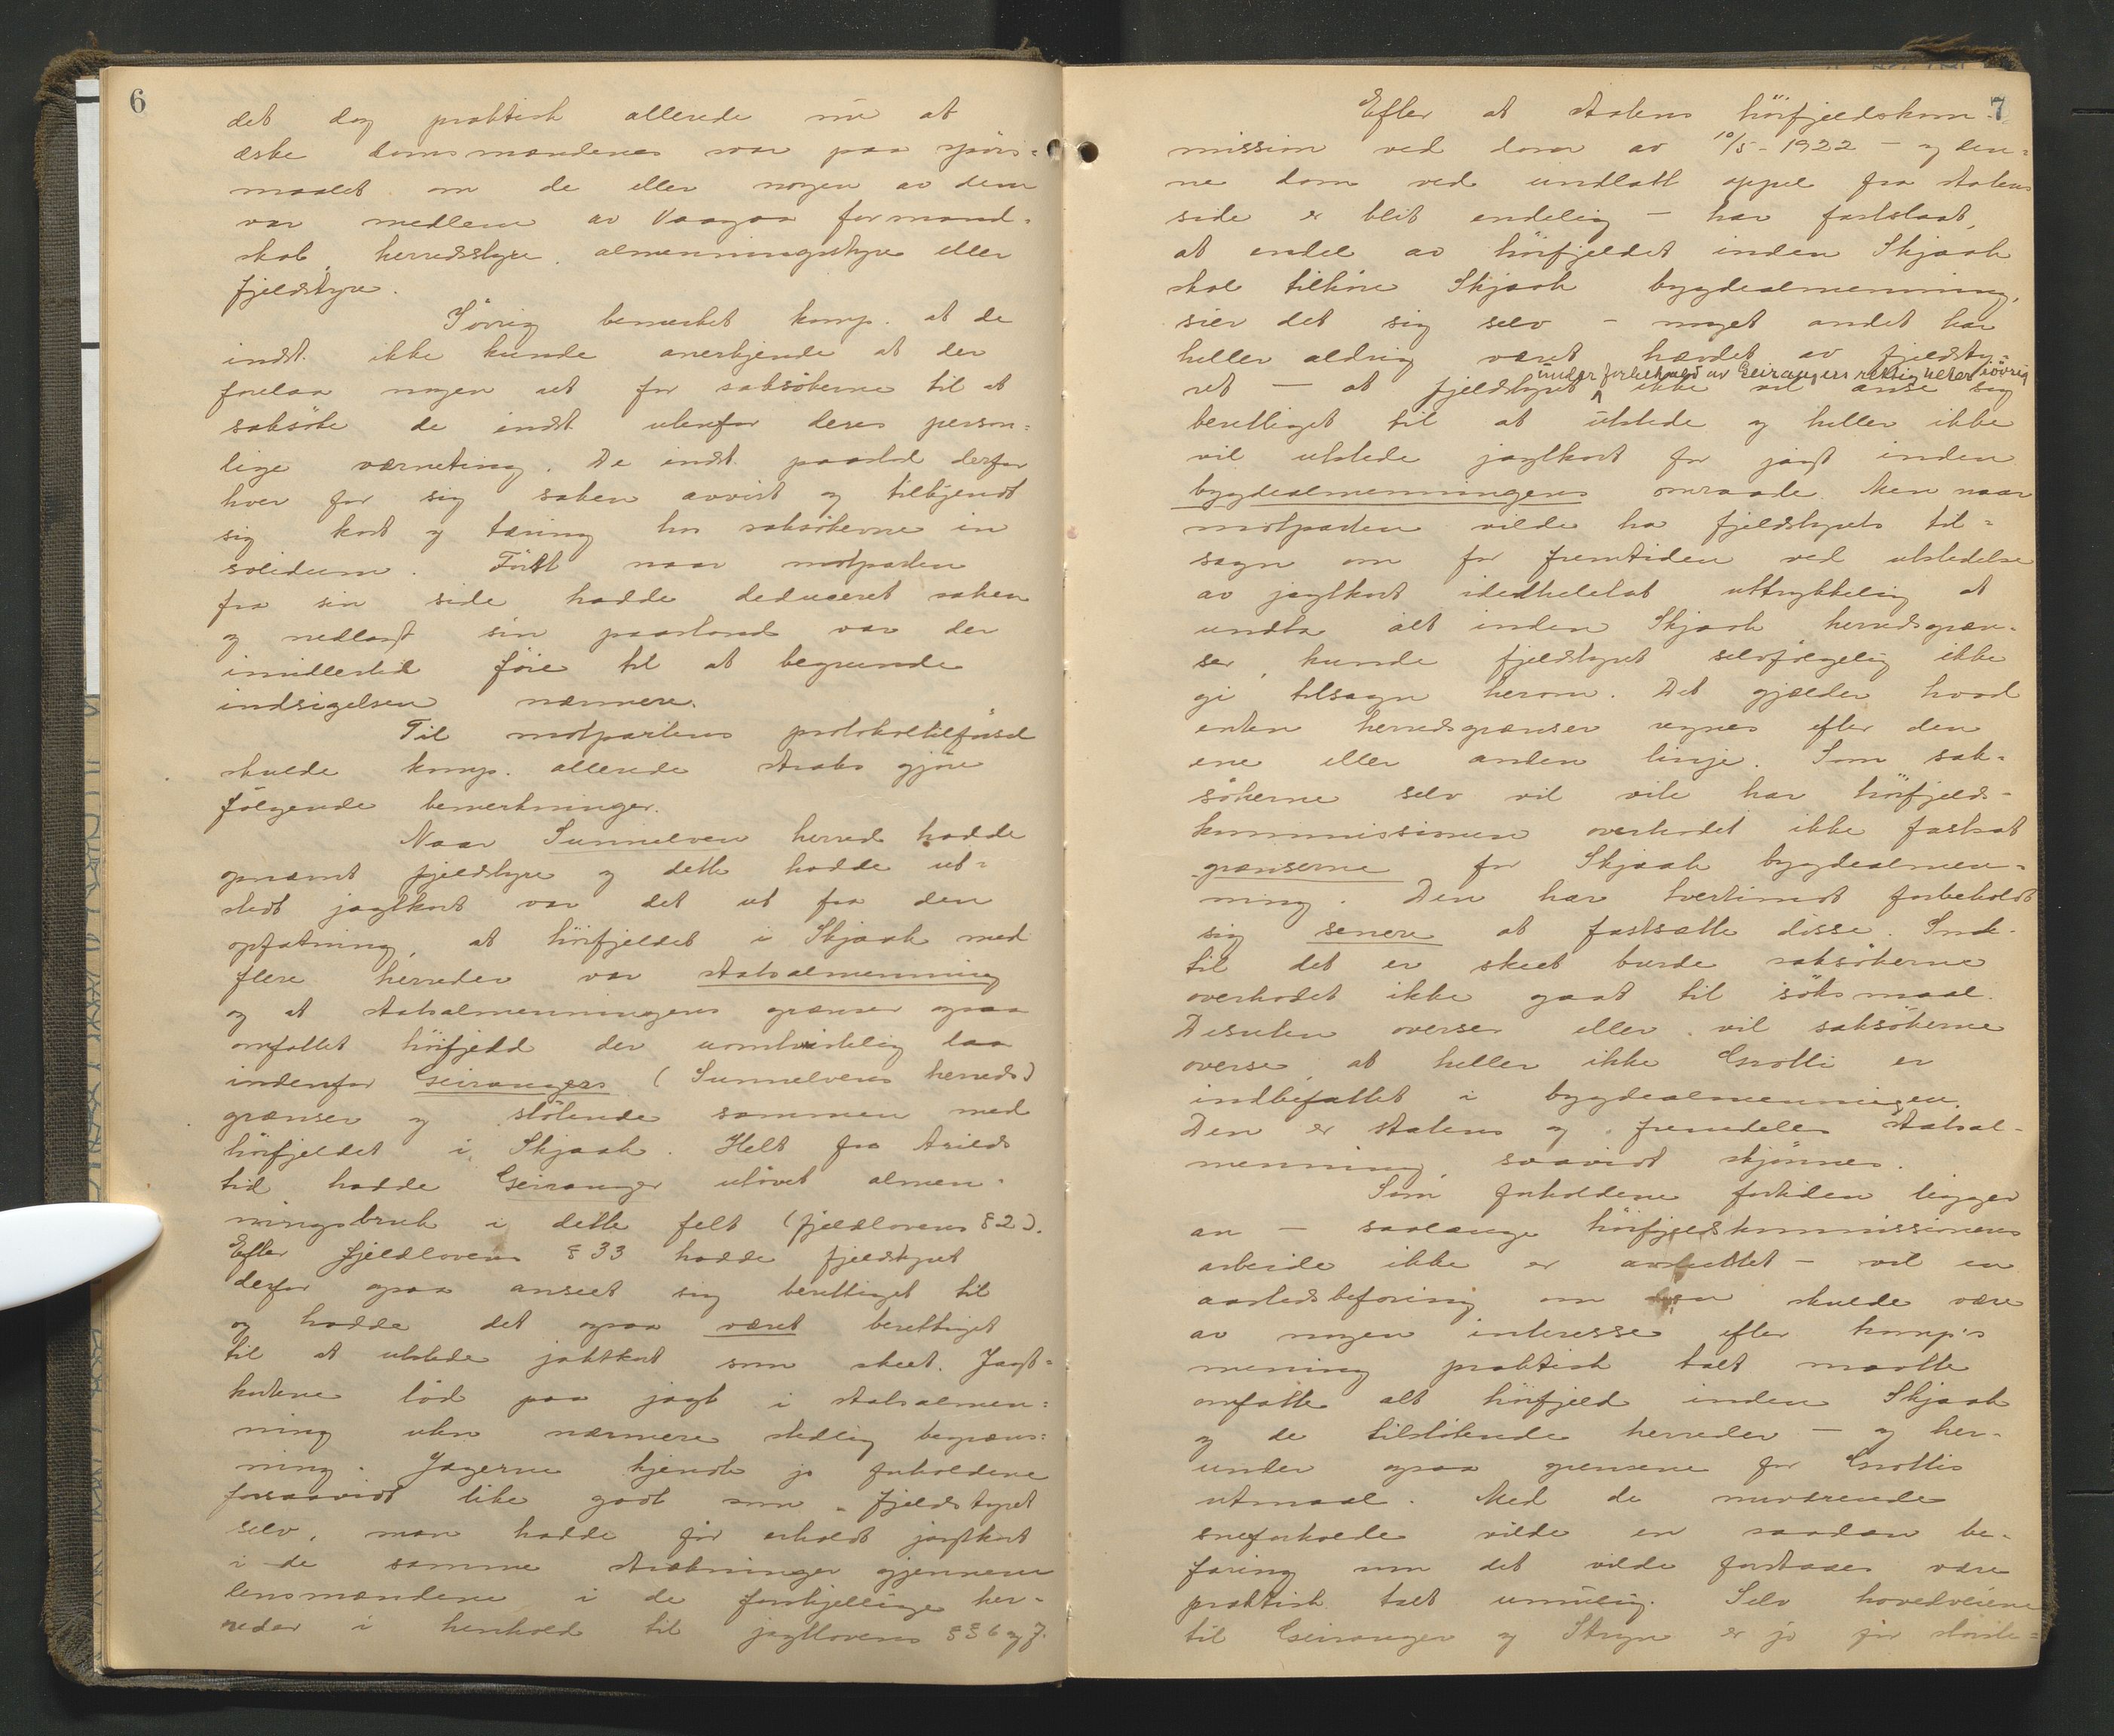 6
det dog praktisk allerede nu at
æske domsmændenes svar paa spörs=
maalet om de eller nogen av dem
var medlem av Vaagaa formand=
skab, herredsstyre, almenningsstyre eller
fjeldstyre.
Iövrig bemerket komp. at de
indst. ikke kunde anerkjende at der
forelaa nogen ret for saksökerne til at
saksöke de indst. utenfor deres person=
lige værneting. De indst. paastod derfor
hver for sig saken avvist og tilkjendt
sig kost og tæring hos saksökerne in
solidum. Först naar motparten
fra sin side hadde deduceret saken
og nedlagt sin paastand var der
imidlertid föie til at begrunde
indsigelsen nærmere.
Til motpartens protokoltilförsel
skulde komp. allerede straks gjöre
fölgende bemerkninger.
Naar Sunnelven herred hadde
opnævnt fjeldstyre og dette hadde ut=
stedt jagtkort var det ut fra den
opfatning, at höifjeldet i Skjaak med
flere herreder var statsalmenning
og at statsalmenningens grænser ogsaa
omfattet höifjeld der uomtvistelig laa
indenfor Geirangers (Sunnelvens herreds)
grænser og stötende sammen med
höifjeldet i Skjaak. Helt fra Arilds
tid hadde Geiranger utövet almen=
ningsbruk i dette felt (fjeldlovens § 2).
Efter fjeldlovens § 33 hadde fjeldstyret
derfor ogsaa anseet sig berettiget til
og hadde det ogsaa været berettiget
til at utstede jaktkort som skeet. Jagt=
kortene löd paa jagt i statsalmen=
ning uten nærmere stedlig begræns=
ning. Jægerne kjendte jo forholdene
forsaavidt like godt som fjeldstyret
selv, man hadde för erholdt jagtkort
i de samme strækninger gjennem
lensmændene i de forskjellige her=
reder i henhold til jagtlovens §§ 6 og 7.
7
Efter at statens höifjeldskom=
mission ved dom av 10/5-1922 - og den=
ne dom ved undlatt appel fra statens
side er blit endelig - har fastslaat,
at endel av höifjeldet inden Skjaak
skal tilhöre Skjaak bygdealmenning,
sier det sig selv - noget andet har
heller aldrig været hævdet av fjeldsty=
under forbehold av Geirangers rettigheter iövrig
ret - at fjeldstyret ikke vil anse sig
berettiget til at utstede og heller ikke
vil utstede jagtkort for jagt inden
bygdealmenningens omraade. Men naar
motparten vilde ha fjeldstyrets til=
sagn om for fremtiden ved utstedelse
av jagtkort idethelelat uttrykkelig at
undta alt inden Skjaak herredsgræn=
ser, kunde fjeldstyret selvfölgelig ikke
gi tilsagn herom. Det gjælder hvad
enten herredsgrænsen regnes efter den
ene eller anden linje. Som sak=
sökerne selv vil vite har höifjelds=
kommissionen overhodet ikke fastsat
grænserne for Skjaak bygdealmen=
ning. Den har tvertimot forbeholdt
sig senere at fastsætte disse. Ind=
til det er skeet burde saksökerne
overhodet ikke gaat til söksmaal.
Desuten overser eller vil saksökerne
overse at heller ikke Grotli er
indbefattet i bygdealmenningen.
Den er statens og fremdeles statsal=
menning, saavidt skjönnes.
Som forholdene fortiden ligger
an - saalænge höifjeldskommissionens
arbeide ikke er avsluttet - vil en
aastedsbefaring om den skulde være
av nogen interesse efter komp's
mening praktisk talt maatte
omfatte alt höifjeld inden Skjaak
og de tilstötende herreder - og her=
under ogsaa grænsene for Grotlis
utmaal. Med de nuværende
sneforholde vilde en saadan be=
faring om det vilde foretaaes være
praktisk talt umulig. Selv hovedveiene
til Geiranger og Stryn er jo for störste=